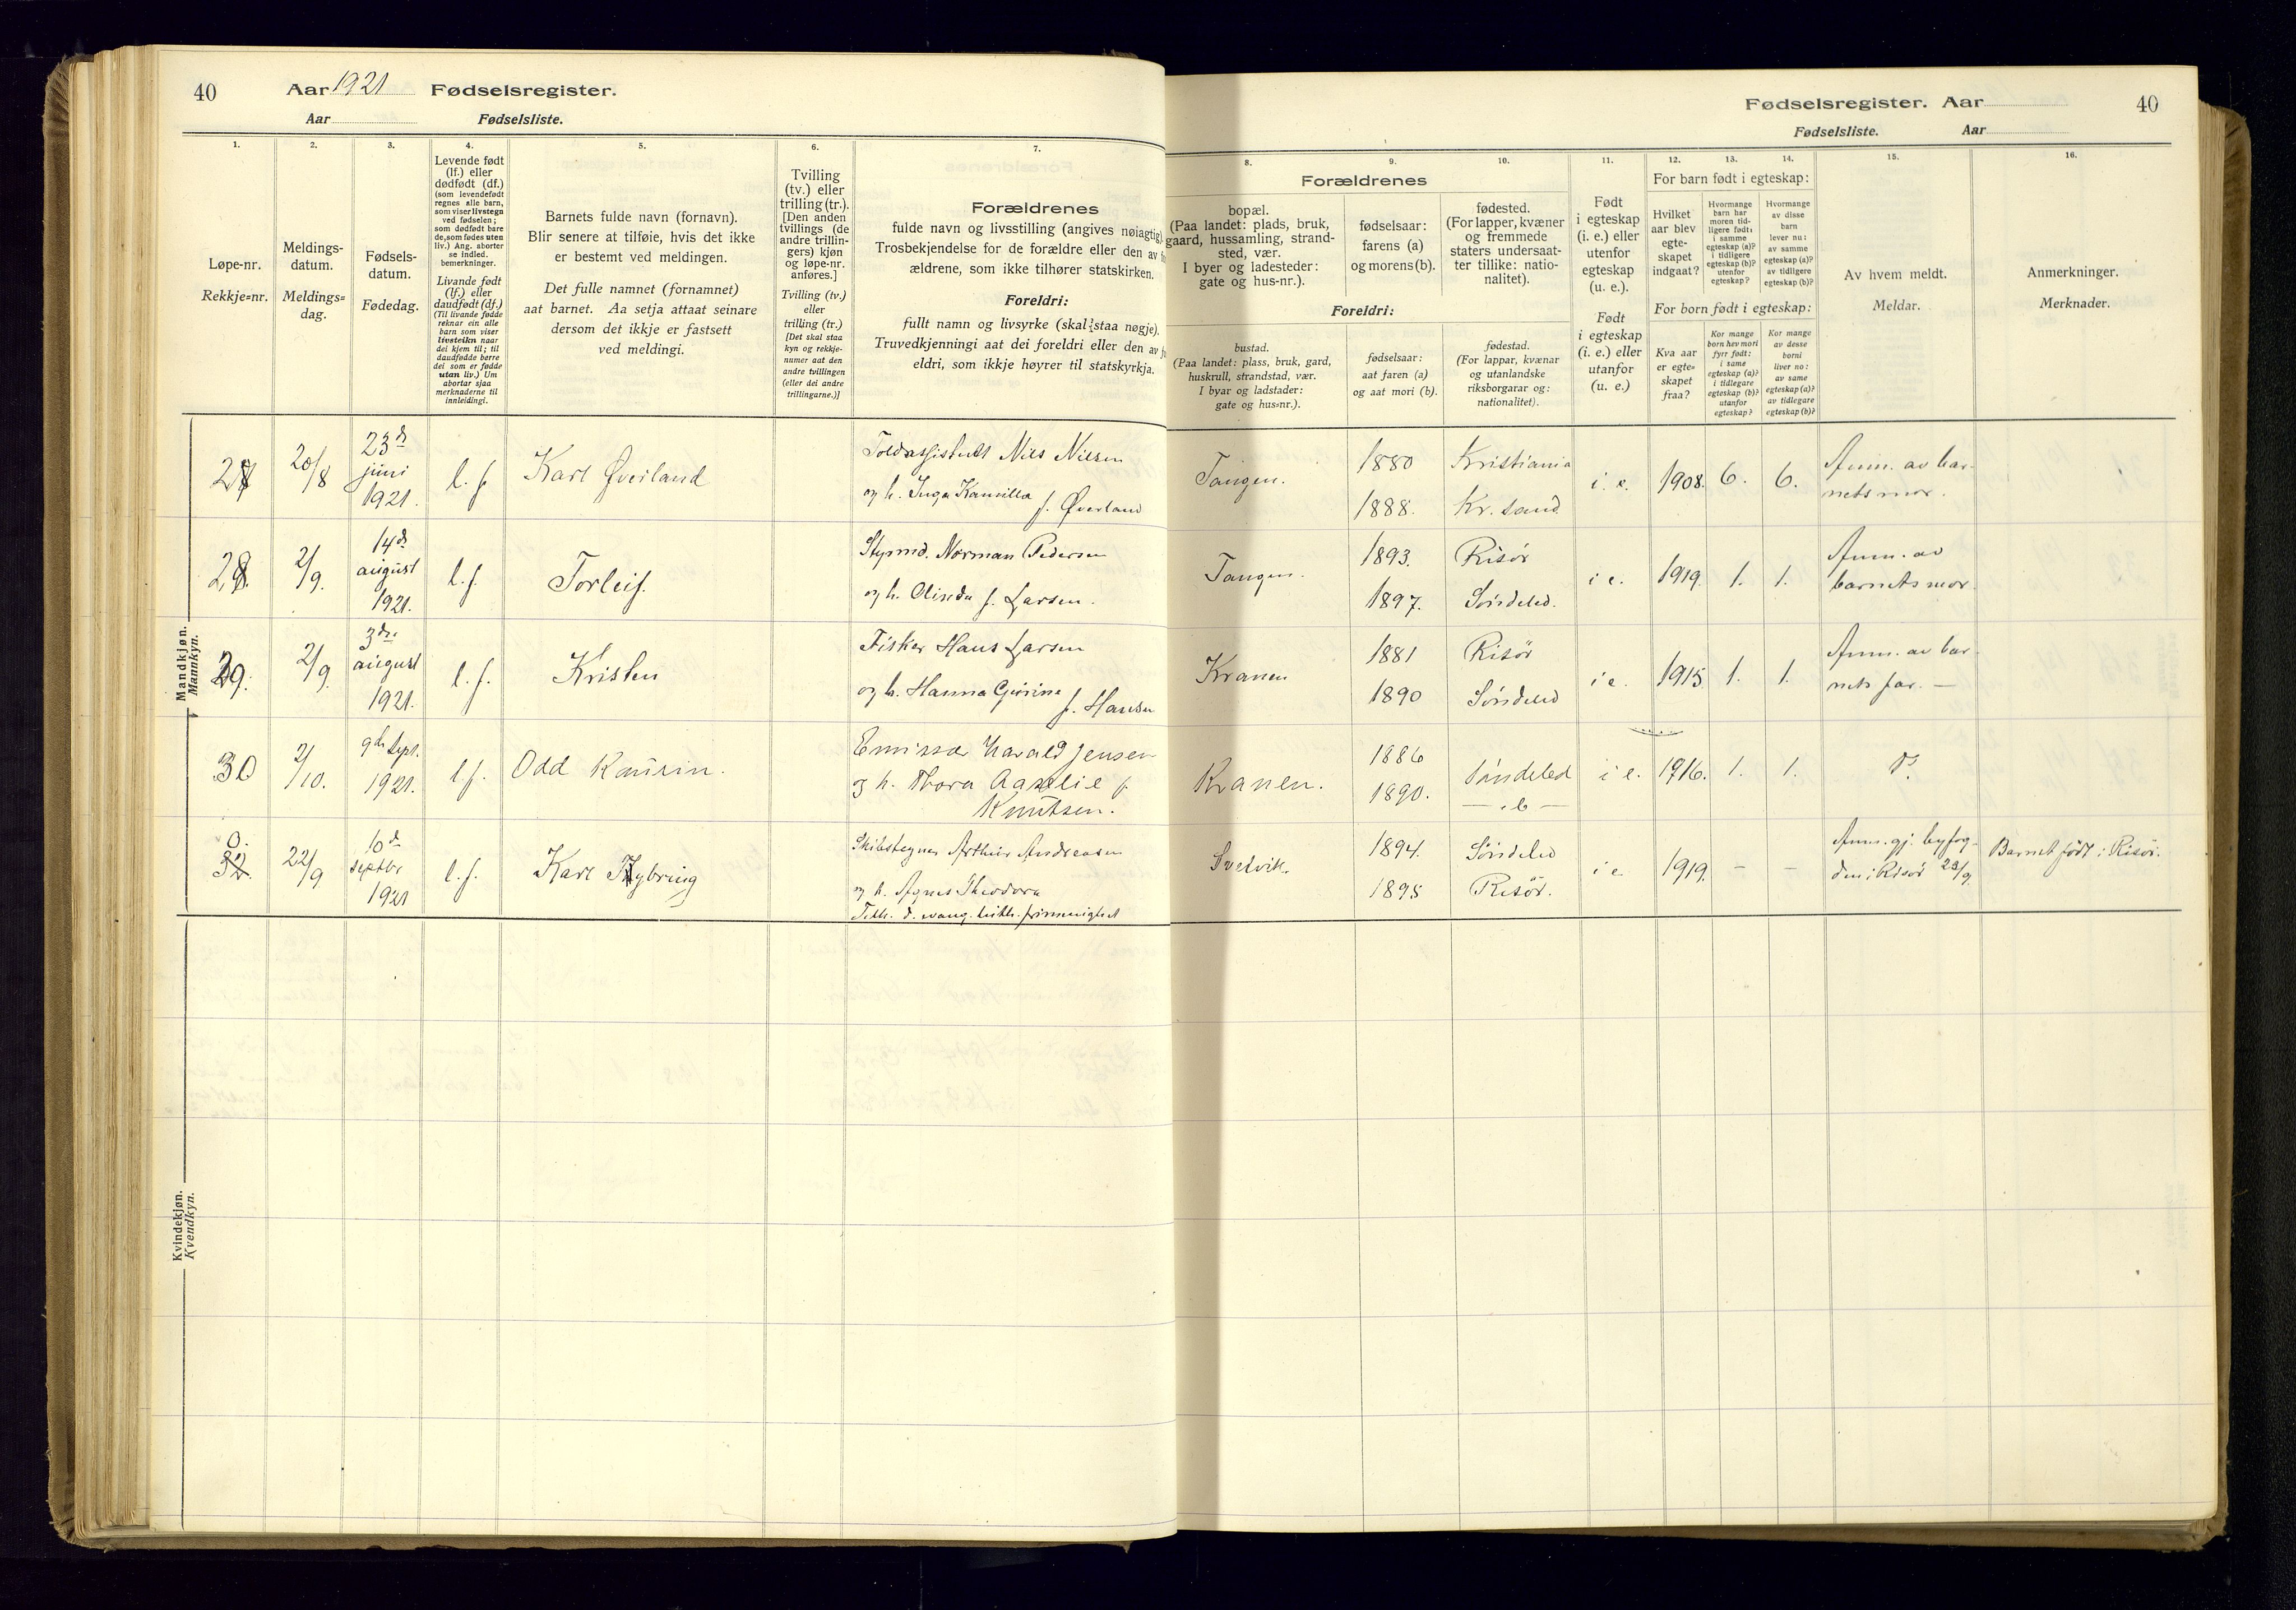 40
Aar 1921 Fødselsregister.
Aar Fødselsliste.
Fødselsregister. Aar
40
Fødselsliste. Aar
1.
Løpe-nr.
Rekkje=nr.
2.
Meldings-
datum.
Meldings=
dag.
3.
Fødsels-
datum.
Fødedag.
4.
Levende født
(lf.) eller
dødfødt (df.)
(som levendefødt
regnes alle barn,
som viser livstegn
ved fødselen;
som dødfødt bare
de, som fødes uten
liv.) Ang. aborter
se indled.
bemerkninger.
Livande født
(lf.) eller
daudfødt (df.)
(Til livande fødde
reknar ein alle
born som viser
livsteikn naar
dei kjem til; til
daudfødde berre
dei som er fødde
utan liv.) Um
abortar sjaa
merknaderne til
innleidingi.
5.
Barnets fulde navn (fornavn).
Blir senere at tilføie, hvis det ikke
er bestemt ved meldingen.
Det fulle namnet (fornamnet)
aat barnet. Aa setja attaat seinare
dersom det ikkje er fastsett
ved meldingi.
6.
Tvilling
(tv.) eller
trilling (tr.).
[Den anden
tvillings (de
andre trillin-
gers) kjøn
og løpe-nr.
anføres.]
Tvilling (tv.)
eller
trilling (tr.)
[Det skal staa
kyn og rekkje-
numer aat den
andre tvillingen
(eller dei andre
trillingarne.)]
7.
Forældrenes
fulde navn og livsstilling (angives nøiagtig).
Trosbekjendelse for de forældre eller den av
ældrene, som ikke tilhører statskirken.
Foreldri:
fullt namn og livsyrke (skal staa nøgje).
Truvedkjenningi aat dei foreldri eller den av
eldri, som ikkje høyrer til statskyrkja.
8.
9.
10.
Forældrenes
bopæl.
(Paa landet: plads, bruk,
gaard, hussamling, strand-
sted, vær.
I byer og ladesteder:
gate og hus-nr.).
fødselsaar:
farens (a)
og morens (b).
fødested.
(For lapper, kvæner
og fremmede
staters undersaat-
ter tillike: natio-
nalitet).
Foreldri:
bustad.
(Paa landet: plass, bruk, gard,
huskrull, strandstad, vær.
I byar og ladstader:
gate og hus=nr.).
fødselsaar:
aat faren (a)
og aat mori (b).
fødestad.
(For lappar, kvænar
og utanlandske
riksborgarar og:
nationalitet).
11.
Født
i egteskap
(i. e.) eller
utenfor
egteskap
(u. e.).
Født
i egteskap
(i. e.) eller
utanfor
(u. e.)
12.
13.
14.
For barn født i egteskap:
Hvilket
aar blev
egte-
skapet
indgaat?
Hvormange
barn har
moren tid-
ligere født:
i samme
egteskap (a)?
i tidligere
egteskap (b)?
utenfor
egteskap?
Hvormange
av disse
barn
lever nu:
av samme
egteskap (a)?
av tidligere
egteskap (b)?
For born født i egteskap:
Kva aar
er egte=
skapet
fraa?
Kor mange
born hev mori
fyrr født:
i same
egteskap (a)?
i tidlegare
egteskap (b)?
utanfor
egteskap?
Kor mange
av desse
borni
liver no:
av same
egteskap (a)?
av tidlegare
egteskap (b)?
15.
Av hvem meldt.
Meldar.
16.
Anmerkninger.
Merknader.
Mandkjøn.
Mannkyn.
27 20/8 23de juni 1921. l. f. Karl Øverland
Toldassistent Nils Nilsen
og h. Inga Kamilla
f. Øverland
Tangen. 1880 Kristiania
1888. Kr. sand
i. e. 1908. 6. 6. Anm. av bar-
nets mor.
28. 2/9. 14de august 1921. l. f. Torleif.
Styrmd. Norman Pedersen
og h. Olinda f. Larsen.
Tangen. 1893. Risör
1897. Söndeled.
i e. 1919. 1. 1. Anm. av
barnets mor.
29. 2/9. 3die august 1921. l. f. Kristen
Fisker Hans Larsen
og h. Hanna Gurine
f. Hansen
Kranen 1881 Risör
1890 Söndeled
i e. 1915 1. 1. Anm. av bar-
nets far. —
30 2/10. 9de sept. 1921. l f. Odd Kaurin.
Emissær Harald Jensen
og h. Thora Aaselie f.
Knutsen.
Kranen. 1886 Söndeled
1890.
i e. 1916. 1. 1. Do.
0.
32. 22/9 10de septbr 1921 l. f. Karl Nybring
Skibstegner Arthur Andreasen
og h. Agnes Theodora
Tilh. d. evang. luth. frimenighet
Svedvik. 1894. Söndeled
1895 Risör.
i e 1919. – – Anm. gj. byfog-
den i Risör 23/9.
Barnet født i Risör.
Kvindekjøn.
Kvendkyn.